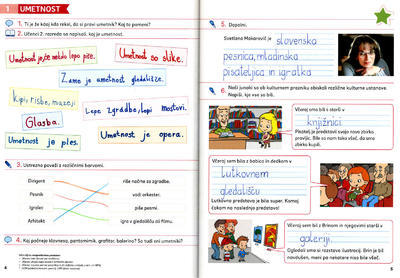 1 UMETNOST
1. Ti je kdaj kdo rekel, da si pravi umetnik? Kaj to pomeni?
2. Učenci 2. razreda so napisali, kaj je umetnost.
Umetnost so slike.
Zame je umetnost gledališče.
Kipi, risbe, muzeji
Lepe zgradbe, lepi mostovi.
Glasba.
Umetnost je ples.
Umetnost je opera.
3. Ustrezno poveži z različnimi barvami.
Dirigent
riše načrte za zgradbe.
Pesnik
vodi orkester.
Igralec
piše pesmi.
Arhitekt
igra v gledališču ali filmu.
4. Kaj počnejo klovnesa, pantomimik, grafitar, balerina? So tudi oni umetniki?
4
5. Dopolni.
Svetlana Makarovič je slovenska
pesnica, mladinska
pisateljica in igralka
6. Naši junaki so ob kulturnem prazniku obiskali različne kulturne ustanove.
Napiši, kje vse so bili.
Včeraj smo bili s starši v
knjižnici
Pisatelj je predstavil svojo novo zbirko
pravljic.
Včeraj sem bila z babico in dedkom v
Lutkovnem
gledališču
Lutkovna predstava je bila super. Komaj
čakam na naslednjo predstavo!
Včeraj sem bil s Brinom in njegovimi starši v
galeriji.
Ogledali smo si razstavo ilustracij. Brin je bil
navdušen, meni pa nekatere niso bile všeč.
5